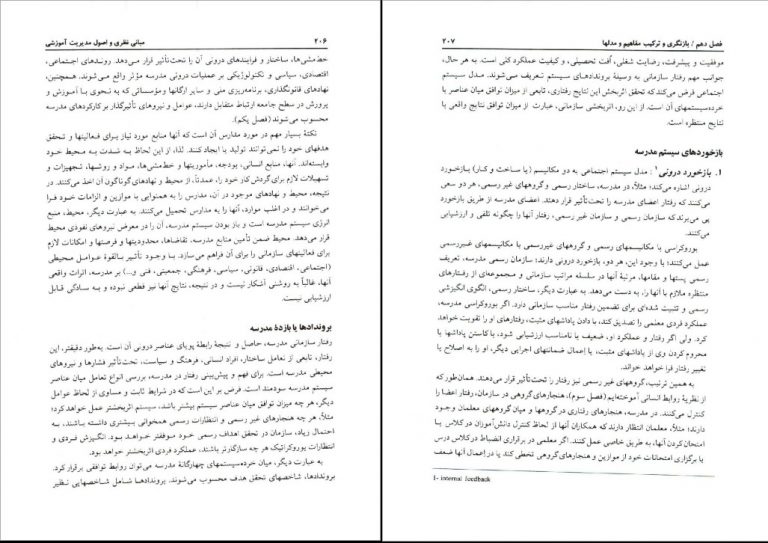 ۲۰۶ مبانی نظری و اصول مدیریت آموزشی
خط‌مشی‌ها، ساختار و فرایندهای درونی آن را تحت‌تأثیر قرار می‌دهد. روندهای اجتماعی،
اقتصادی، سیاسی و تکنولوژیکی بر عملیات درونی مدرسه مؤثر واقع می‌شوند. همچنین،
نهادهای قانونگذاری، برنامه‌ریزی ملی و سایر ارگانها و مؤسساتی که به نحوی با آموزش و
پرورش در سطح جامعه ارتباط متقابل دارند، عوامل و نیروهای تأثیرگذار بر کارکردهای مدرسه
محسوب می‌شوند (فصل یکم).
نکتهٔ بسیار مهم در مورد مدارس آن است که آنها منابع مورد نیاز برای فعالیتها و تحقق
هدفهای خود را نمی‌توانند تولید یا ایجاد کنند. لذا، از این لحاظ به شدت به محیط خود
وابسته‌اند. آنها، منابع انسانی، بودجه، مأموریتها و خط‌مشی‌ها، مواد و روشها، تجهیزات و
تسهیلات لازم برای گردش کار خود را، عمدتاً، از محیط و نهادهای گوناگون آن اخذ می‌کنند. در
نتیجه، محیط و نهادهای موجود در آن، مدارس را به همنوایی با موازین و الزامات خود فرا
می‌خوانند و در اغلب موارد، آنها را به مدارس تحمیل می‌کنند. به عبارت دیگر، محیط، منبع
انرژی سیستم مدرسه است و باز بودن سیستم مدرسه، آن را در معرض نیروهای نفوذی محیط
قرار می‌دهد. محیط ضمن تأمین منابع مدرسه، تقاضاها، محدودیتها و فرصتها و امکانات لازم
برای فعالیتهای سازمانی را برای آن فراهم می‌سازد. با وجود تأثیر بالقوهٔ عوامل محیطی
(اجتماعی، اقتصادی، قانونی، سیاسی، فرهنگی، جمعیتی، فنی و...) بر مدرسه، اثرات واقعی
آنها، غالباً به روشنی آشکار نیست و در نتیجه، نتایج آنها نیز قطعی نبوده و به سادگی قابل
ارزشیابی نیست.
بروندادها یا بازدهٔ مدرسه
رفتار سازمانی مدرسه، حاصل و نتیجهٔ رابطهٔ پویای عناصر درونی آن است. به‌طور دقیقتر، این
رفتار، تابعی از تعامل ساختار، افراد انسانی، فرهنگ و سیاست، تحت‌تأثیر فشارها و نیروهای
محیطی مدرسه است. برای فهم و پیش‌بینی رفتار در مدرسه، بررسی انواع تعامل میان عناصر
سیستم مدرسه سودمند است. فرض بر این است که در شرایط ثابت و مساوی از لحاظ عوامل
دیگر، هر چه میزان توافق میان عناصر سیستم بیشتر باشد، سیستم اثربخشتر عمل خواهد کرد؛
مثلاً، هر چه هنجارهای غیر رسمی و انتظارات رسمی همخوانی بیشتری داشته باشند، به
احتمال زیاد، سازمان در تحقق اهداف رسمی خود موفقتر خواهد بود. انگیزش فردی و
انتظارات بوروکراتیک هر چه سازگارتر باشند، عملکرد فردی اثربخشتر خواهد بود.
به عبارت دیگر، میان خرده‌سیستمهای چهارگانهٔ مدرسه می‌توان روابط توافقی برقرار کرد.
بروندادها، شاخصهای تحقق هدف محسوب می‌شوند. بروندادها شامل شاخصهایی نظیر
فصل دهم / بازنگری و ترکیب مفاهیم و مدلها ۲۰۷
موفقیت و پیشرفت، رضایت شغلی، اُفت تحصیلی، و کیفیت عملکرد کلی است. به هر حال،
جوانب مهم رفتار سازمانی به وسیلهٔ بروندادهای سیستم تعریف می‌شوند. مدل سیستم
اجتماعی فرض می‌کند که تحقق اثربخش این نتایج رفتاری، تابعی از میزان توافق میان عناصر یا
خرده‌سیستمهای آن است. از این رو، اثربخشی سازمانی، عبارت از میزان توافق نتایج واقعی با
نتایج منتظره است.
بازخوردهای سیستم مدرسه
۱. بازخورد درونی۱: مدل سیستم اجتماعی به دو مکانیسم (یا ساخت و کار) بازخورد
درونی اشاره می‌کند؛ مثلاً، در مدرسه، ساختار رسمی و گروههای غیر رسمی، هر دو سعی
می‌کنند که رفتار اعضای مدرسه را تحت‌تأثیر قرار دهند. اعضای مدرسه از طریق بازخورد
پی می‌برند که سازمان رسمی و سازمان غیر رسمی، رفتار آنها را چگونه تلقی و ارزشیابی
می‌کنند.
بوروکراسی با مکانیسمهای رسمی و گروههای غیررسمی با مکانیسمهای غیررسمی
عمل می‌کنند؛ با وجود این، هر دو، بازخورد درونی دارند؛ سازمان رسمی مدرسه، تعریف
رسمی پستها و مقامها، مرتبهٔ آنها در سلسله مراتب سازمانی و مجموعه‌ای از رفتارهای
منتظره ملازم با آنها را به دست می‌دهد. به عبارت دیگر، ساختار رسمی، الگوی انگیزشی
رسمی و تثبیت شده‌ای برای تضمین رفتار مناسب سازمانی دارد. اگر بوروکراسی مدرسه،
عملکرد فردی معلمی را تصدیق کند، با دادن پاداشهای مثبت، رفتارهای او را تقویت خواهد
کرد. ولی اگر رفتار و عملکرد او، ضعیف یا نامناسب ارزشیابی شود، با کاستن پاداشها یا
محروم کردن وی از پاداشهای مثبت، یا اِعمال ضمانتهای اجرایی دیگر، او را به اصلاح یا
تغییر رفتار فرا خواهد خواند.
به همین ترتیب، گروههای غیر رسمی نیز رفتار را تحت‌تأثیر قرار می‌دهند. همان‌طور که
از نظریهٔ روابط انسانی آموخته‌ایم (فصل سوم)، هنجارهای گروهی در سازمان، رفتار اعضا را
کنترل می‌کنند. در مدرسه، هنجارهای رفتاری در گروهها و میان گروههای معلمان وجود
دارند؛ مثلاً، معلمان انتظار دارند که همکاران آنها از لحاظ کنترل دانش‌آموزان در کلاس یا
امتحان کردن آنها، به طریق خاصی عمل کنند. اگر معلمی در برقراری انضباط در کلاس درس
یا برگزاری امتحانات خود از موازین و هنجارهای گروهی تخطی کند یا در اِعمال آنها ضعف
1- internal feedback